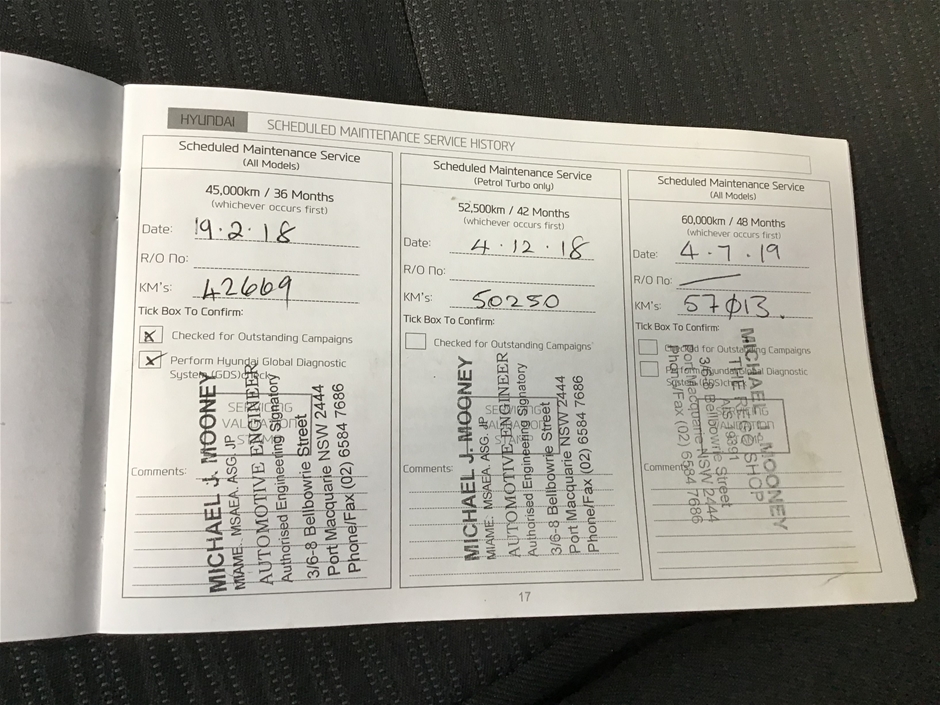 HYUNDAI
SCHEDULED MAINTENANCE SERVICE HISTORY
Scheduled Maintenance Service
(All Models)
45,000km / 36 Months
(whichever occurs first)
Date: 19·2·18
R/O No:
KM's: 42669
Tick Box To Confirm:
x Checked for Outstanding Campaigns
x Perform Hyundai Global Diagnostic
System (GDS)check
SERVICING
VALIDATION
STAMP
Comments:
MICHAEL J. MOONEY
MIAME. MSAEA. ASG. JP
AUTOMOTIVE ENGINEER
Authorised Engineering Signatory
3/6-8 Bellbowrie Street
Port Macquarie NSW 2444
Phone/Fax (02) 6584 7686
Scheduled Maintenance Service
(Petrol Turbo only)
52,500km / 42 Months
(whichever occurs first)
Date: 4·12·18
R/O No:
KM's: 50250
Tick Box To Confirm:
Checked for Outstanding Campaigns
SERVICING
VALIDATION
STAMP
Comments:
MICHAEL J. MOONEY
MIAME. MSAEA. ASG. JP
AUTOMOTIVE ENGINEER
Authorised Engineering Signatory
3/6-8 Bellbowrie Street
Port Macquarie NSW 2444
Phone/Fax (02) 6584 7686
Scheduled Maintenance Service
(All Models)
60,000km / 48 Months
(whichever occurs first)
Date: 4·7·19
R/O No: —
KM's: 57013.
Tick Box To Confirm:
Checked for Outstanding Campaigns
Perform Hyundai Global Diagnostic
System (GDS)check
Comments:
MICHAEL J. MOONEY
THE REGO SHOP
Bellbowrie Street
Port Macquarie NSW 2444
Phone/Fax (02) 6584 7686
17